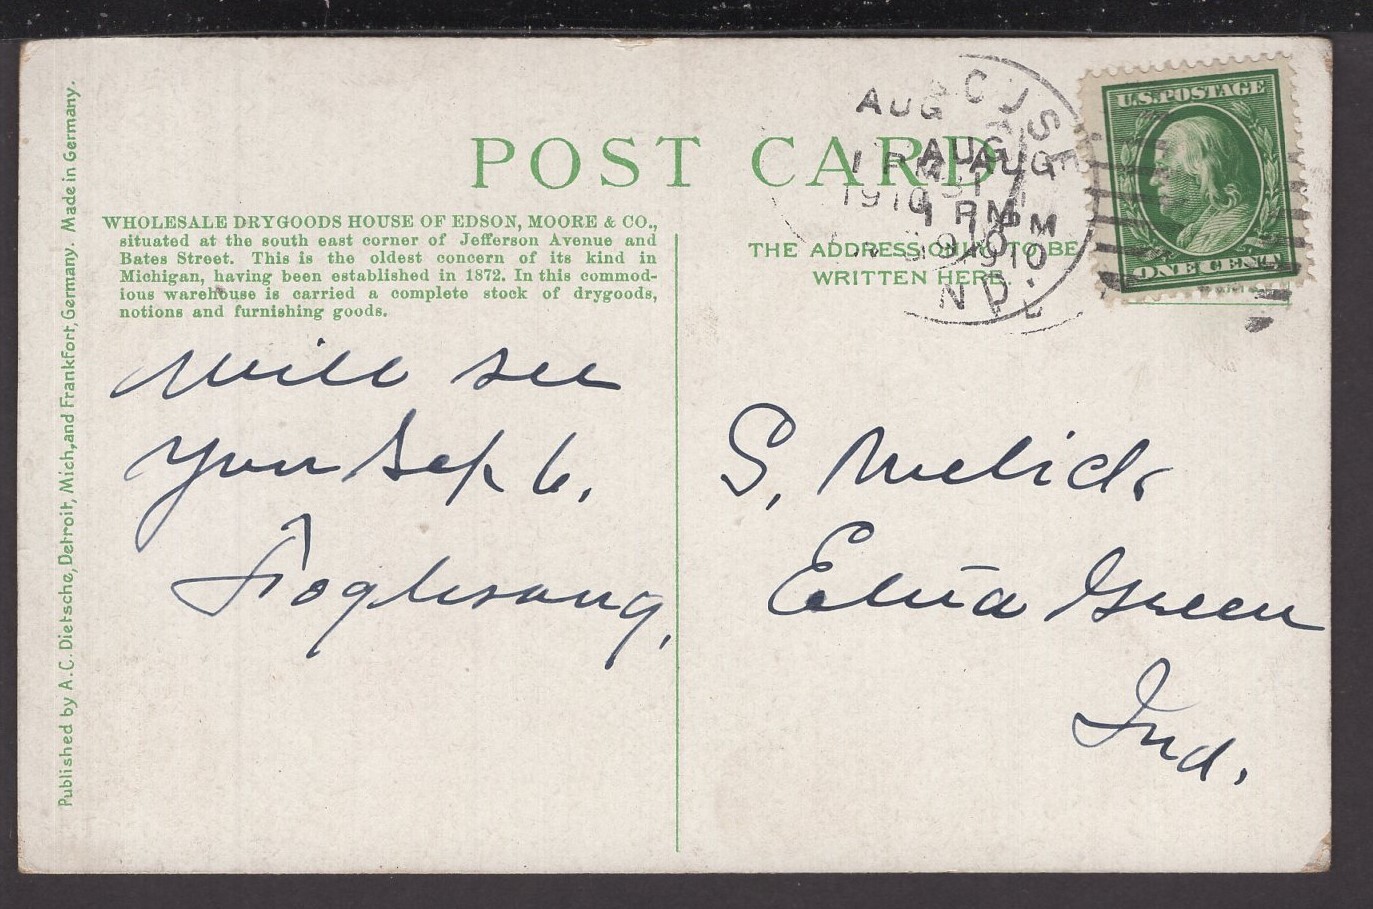 POST CARD
WHOLESALE DRYGOODS HOUSE OF EDSON, MOORE & CO.,
situated at the south east corner of Jefferson Avenue and
Bates Street. This is the oldest concern of its kind in
Michigan, having been established in 1872. In this commod-
ious warehouse is carried a complete stock of drygoods,
notions and furnishing goods.
Published by A. C. Dietsche, Detroit, Mich, and Frankfort, Germany. Made in Germany.
Will see
you Sep 6.
Foglesong.
CUSE
AUG AUG AUG
1 PM
1910
31
1 PM
1910
IND.
U.S. POSTAGE
ONE CENT
THE ADDRESS ONLY TO BE
WRITTEN HERE.
S. Melick
Etna Green
Ind.